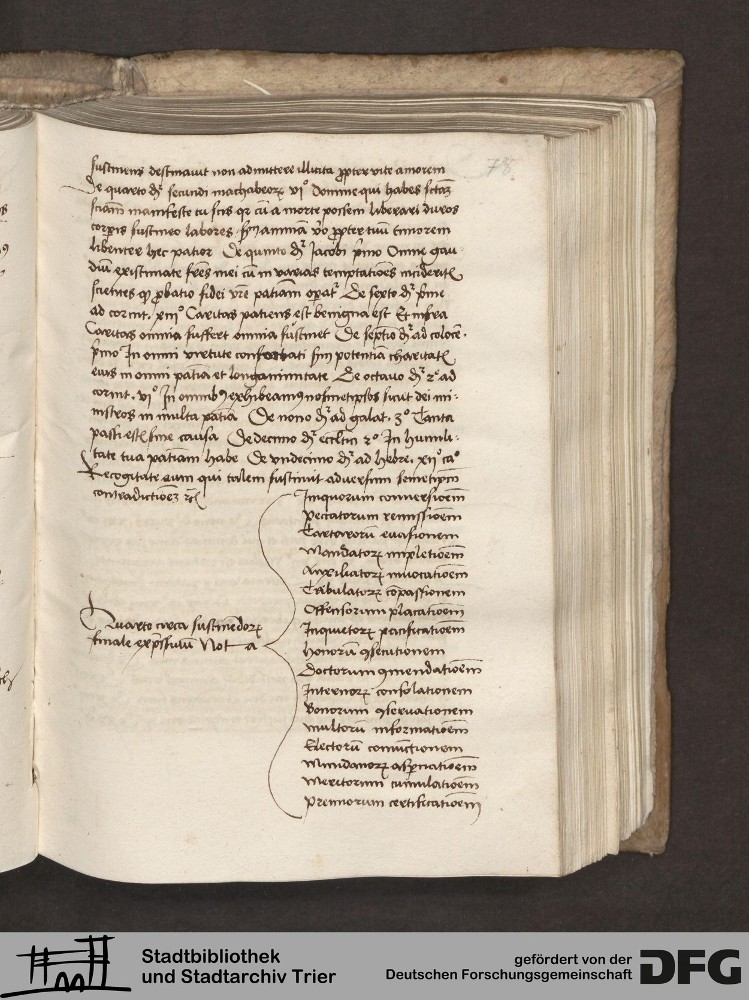 78
sustinens destinauit non admittere illicita propter vite amorem
De quarto dr secundi machabeorum vi° Domine qui habes sctam
sciam manifeste tu scis qr cu a morte possem liberari duros
corpis sustineo labores scdm animam vo propter tuu timorem
libenter hec patior De quinto dr Jacobi pmo Omne gau
diu existimate fres mei cu in varias temptatioes incideritis
scientes qp probatio fidei vre patiam opat De sexto dr pme
ad corint. xiij° Caritas patiens est benigna est Et infra
Caritas omnia suffert omnia sustinet De septio dr ad coloce.
pmo In omni virtute confortati scdm potentia charitatis
eius in omni patia et longanimitate De octauo dr 2e ad
corint. vi° In omnibus exhibeamus nosmetipsos sicut dei mi
nistros in multa patia De nono dr ad galat. 3° Tanta
passi estis sine causa De decimo dr eccltici 2° In humili
tate tua patiam habe De vndecimo dr ad hebre. xij° ca°
Recogitate eum qui talem sustinuit aduersum semetipm
contradictioez rc
Iniquorum conuersioem
Peccatorum remissioem
euasionem
Mandatorum impletioem
Auxiliatorum inuocatioem
Tribulatorum compassionem
Offensorum placatioem
Inquietorum pacificatioem
Quarto circa sustinedorum
finale expssiuu Not a
Honoru consecutionem
Doctorum comendatioem
Internorum consolationem
Bonorum conseruationem
Multoru informatioem
Electoru conuictionem
Mundanorum aspnatioem
Meritorum cumulatioem
Premiorum certificatioem
Stadtbibliothek
und Stadtarchiv Trier
gefördert von der
Deutschen Forschungsgemeinschaft
DFG